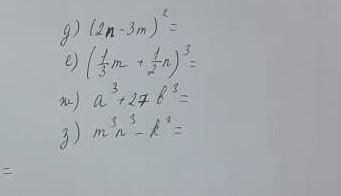 д) (2n-3m)²=
е) (1/3 m + 1/2 n)³=
ж) a³+27b³=
з) m³n³-k³=
=